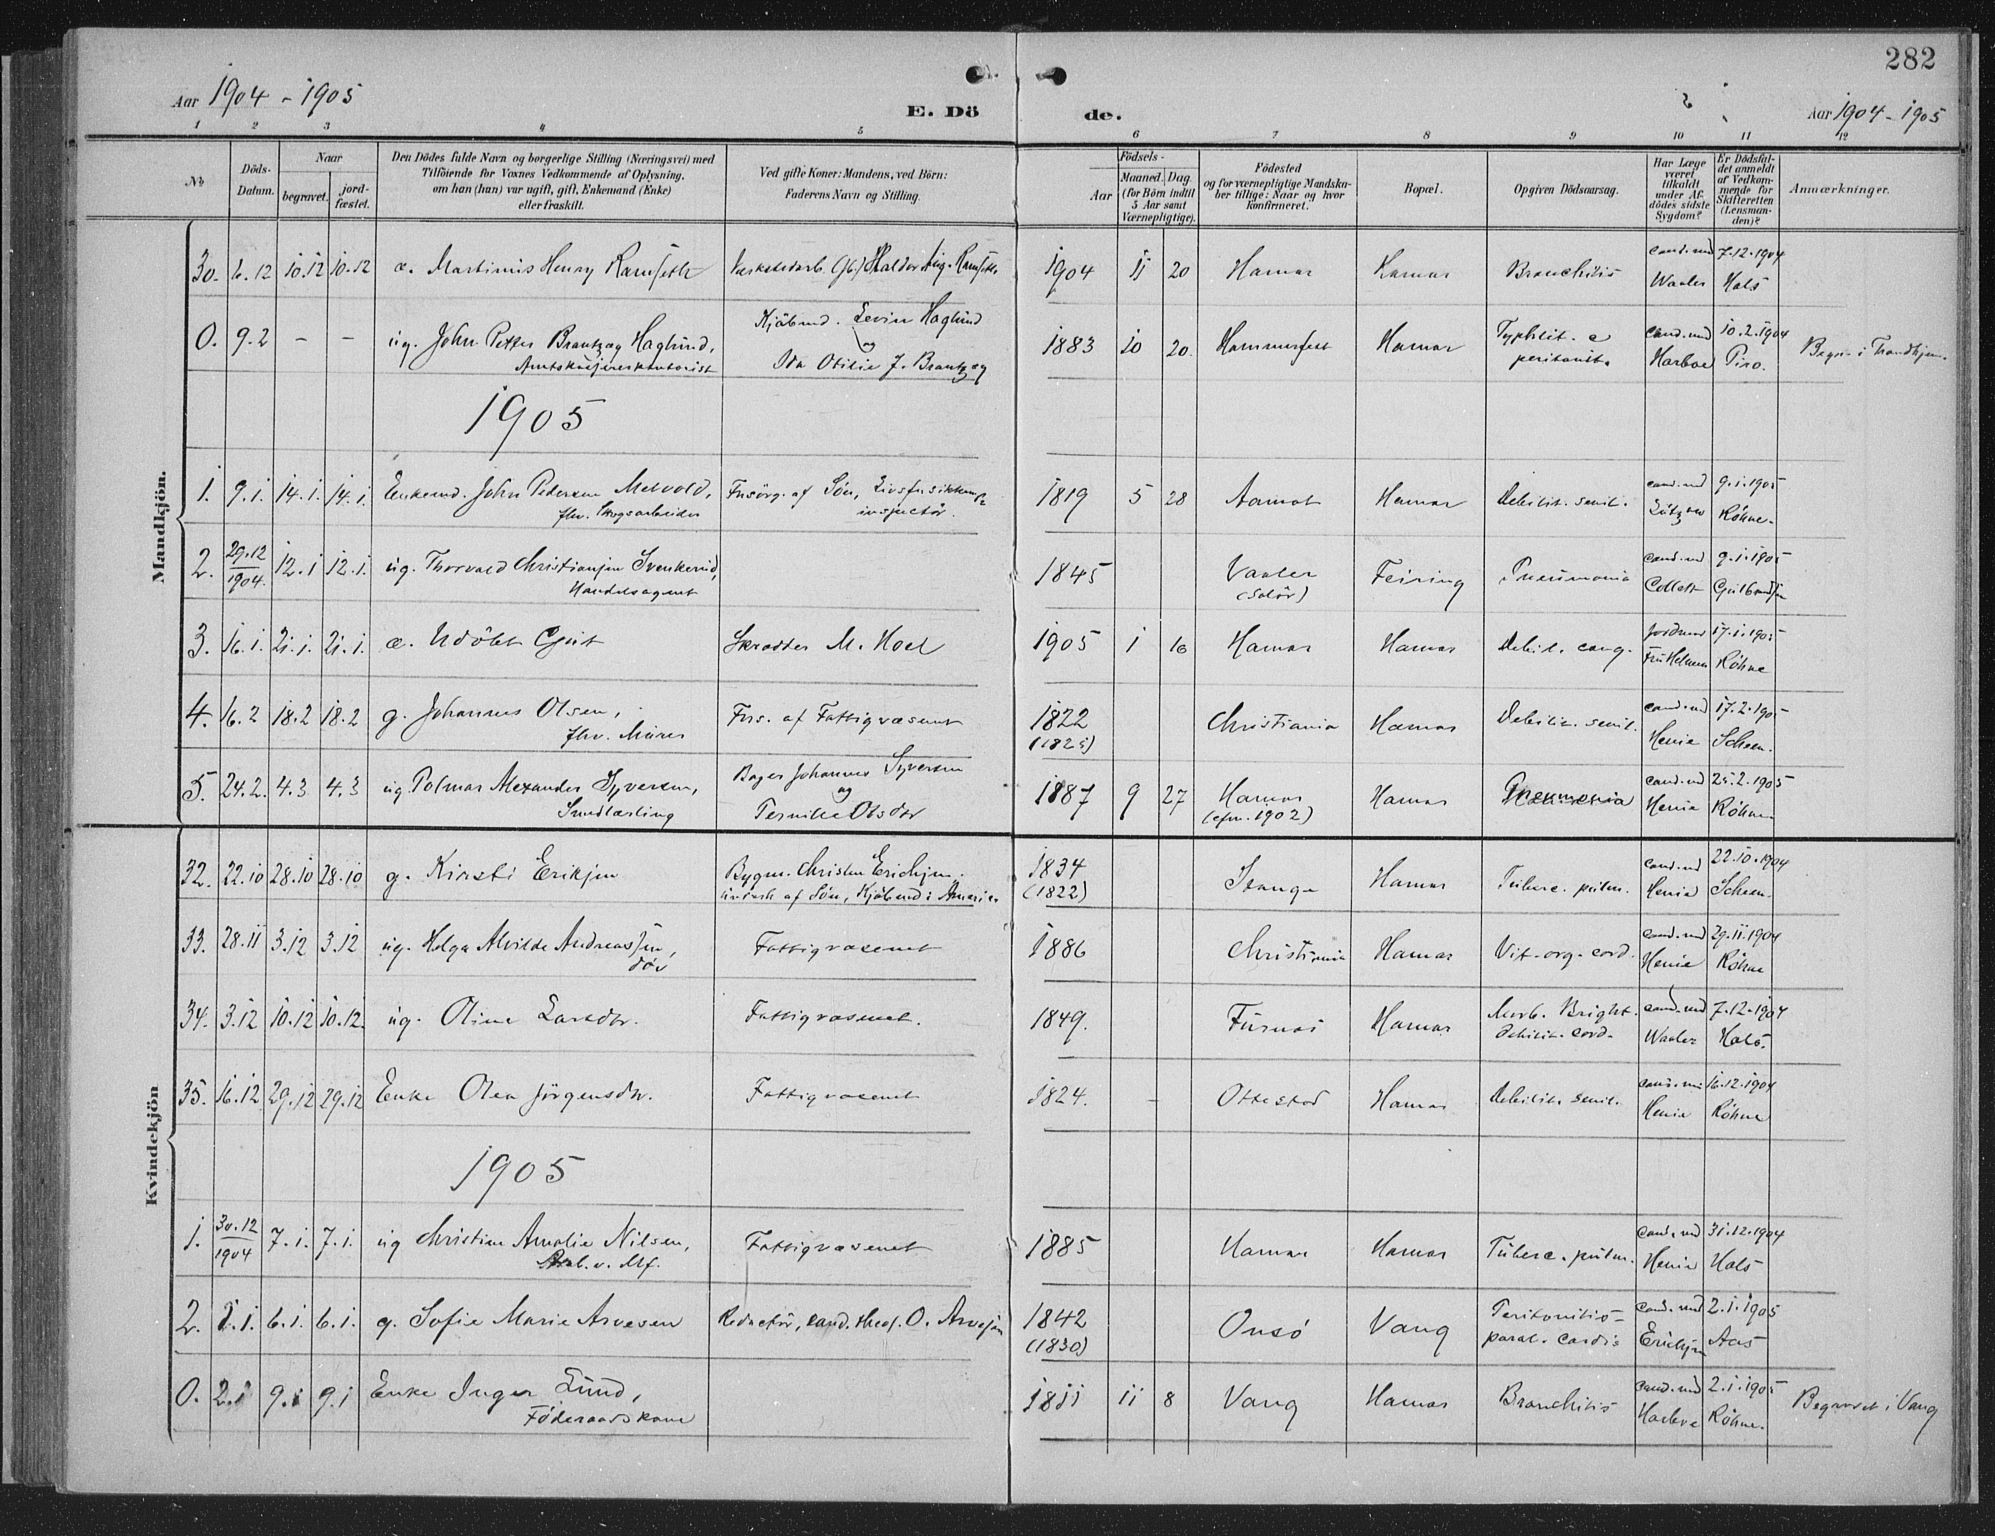 282
Aar 1904 - 1905
E. Dö
de.
Aar 1904 - 1905
1 2 3 4 5 6 7 8 9 10 11 12
No
Döds-
Datum.
Naar
begravet.
jord-
fæstet.
Den Dödes fulde Navn og borgerlige Stilling (Næringsvei) med
Tilföiende for Voxnes Vedkommende af Oplysning,
om han (hun) var ugift, gift, Enkemand (Enke)
eller fraskilt.
Ved gifte Koner: Mandens, ved Börn:
Faderens Navn og Stilling.
Födsels-
Aar
Maaned. Dag
(for Börn indtil
5 Aar samt
Værnepligtige).
Födested
og for værnepligtige Mandska-
ber tillige: Naar og hvor
konfirmeret.
Bopæl.
Opgiven Dödsaarsag.
Har Læge
været
tilkaldt
under Af-
dödes sidste
Sygdom?
Er Dödsfal-
det anmeldt
af Vedkom-
mende for
Skifteretten
(Lensman-
den)?
Anmærkninger.
Mandkjön.
30. 6.12 10.12 10.12 æ. Martinius Henry Ramseth 1904 11 20 Hamar Hamar Bronchitis cand.med 7.12.1904
Waaler Hals
0. 9.2 - - ug. John Petter Brantzæg Haglund, Kjöbmd. Levin Haglund 1883 10 20 Hammerfest Hamar Typhlit. c cand.med 10.2.1904
Amtskasserer­kontorist og Ida Otilie J. Brantzæg peritonit. Harboe Piro. Begr. i Trondhjem
1905
1. 9.1. 14.1. 14.1. Enkemd. John Pedersen Melvold, Forsörg. af Sön, 1819 5 28 Aamot Hamar Debilit. senil. cand.med 9.1.1905
fhv. Skogsarbeider inspectör. Lützow Röhne.
2. 29.12 12.1 12.1. ug. Thorvald Christiansen Svenkerud, 1845 Vaaler Feiring Pneumonia cand.med 9.1.1905
1904. Handelsagent (Solör) Collett Gulbrandsen
3. 16.1. 21.1. 21.1. æ. Udöbt Gut Skrædder M. Hoel 1905 1 16 Hamar Hamar Debil. cong. Jordmor 17.1.1905
Röhne
4. 16.2 18.2 18.2 g. Johannes Olsen, Fors. af Fattigvæsenet 1822 Christiania Hamar Debilit. senil. cand.med 17.2.1905
fhv. Murer (1825) Henie Scheen.
5. 24.2. 4.3 4.3 ug. Polmar Alexander Syversen, Bager Johannes Syversen 1887 9 27 Hamar Hamar Pneumonia cand.med 25.2.1905
Smedlærling og Pernille Olsdtr (cfm. 1902) Henie Röhne.
Kvindekjön
32. 22.10 28.10 28.10 g. Kirsti Eriksen Bygm. Christen Erichsen. 1834 Stange Hamar Tuberc. pulm. cand.med 22.10.1904
af Sön, Kjöbmd i Amerika (1822) Henie Scheen.
33. 28.11 3.12 3.12 ug. Helga Alvilde Andreassen, Fattigvæsenet 1886 Christiania Hamar Vit. org. cord. cand.med 29.11.1904
döv Henie Röhne
34. 3.12 10.12 10.12. ug. Oline Larsdtr. Fattigvæsenet. 1849. Furnes Hamar Morb. Bright. cand.med 7.12.1904
debilit. cord. Waaler Hals.
35. 16.12 29.12 29.12 Enke Olea Jörgensdtr. Fattigvæsenet 1824. - Ottestad Hamar Debilit. senil. cand.med 16.12.1904
Henie Röhne
1905
1. 30.12 7.1. 7.1. ug Christine Amalie Nilsen, Fattigvæsenet 1885 Hamar Hamar Tuberc. pulm. cand.med 31.12.1904
1904 Arb. v. Mf. Henie Hals
2. 1.1. 6.1. 6.1. g. Sofie Marie Arvesen Redactör, cand. theol. O. Arvesen 1842 Onsö Vang Peritonitis- cand.med 2.1.1905
(1830) paral. cordis Erichsen Aas
0. 2.1 9.1 9.1 Enke Inger Lund, 1811 11 8 Vang Hamar Bronchitis cand.med 2.1.1905 Begravet i Vang
Föderaadskone Harboe Röhne.